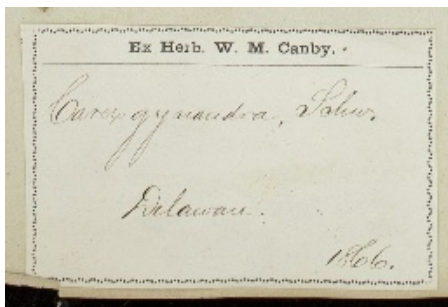 Ex Herb. W. M. Canby.
Carex gynandra, Schw.
Delaware.
1866.